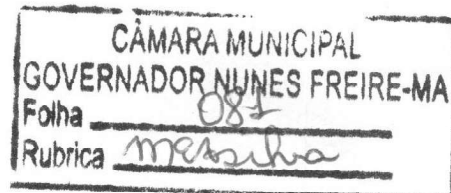 CÂMARA MUNICIPAL
GOVERNADOR NUNES FREIRE-MA
Folha 081
Rubrica